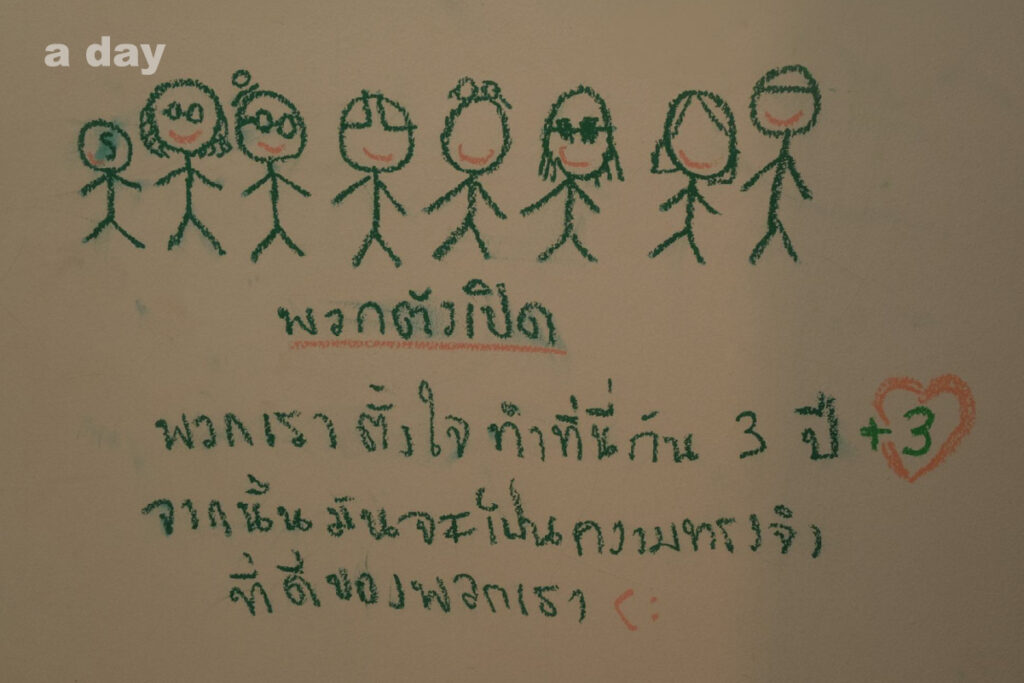 a day
S
พวกตัวเปิด
พวกเราตั้งใจทำที่นี่กัน 3 ปี +3
จากนั้นมันจะเป็นความทรงจำ
ที่ดีของพวกเรา (: